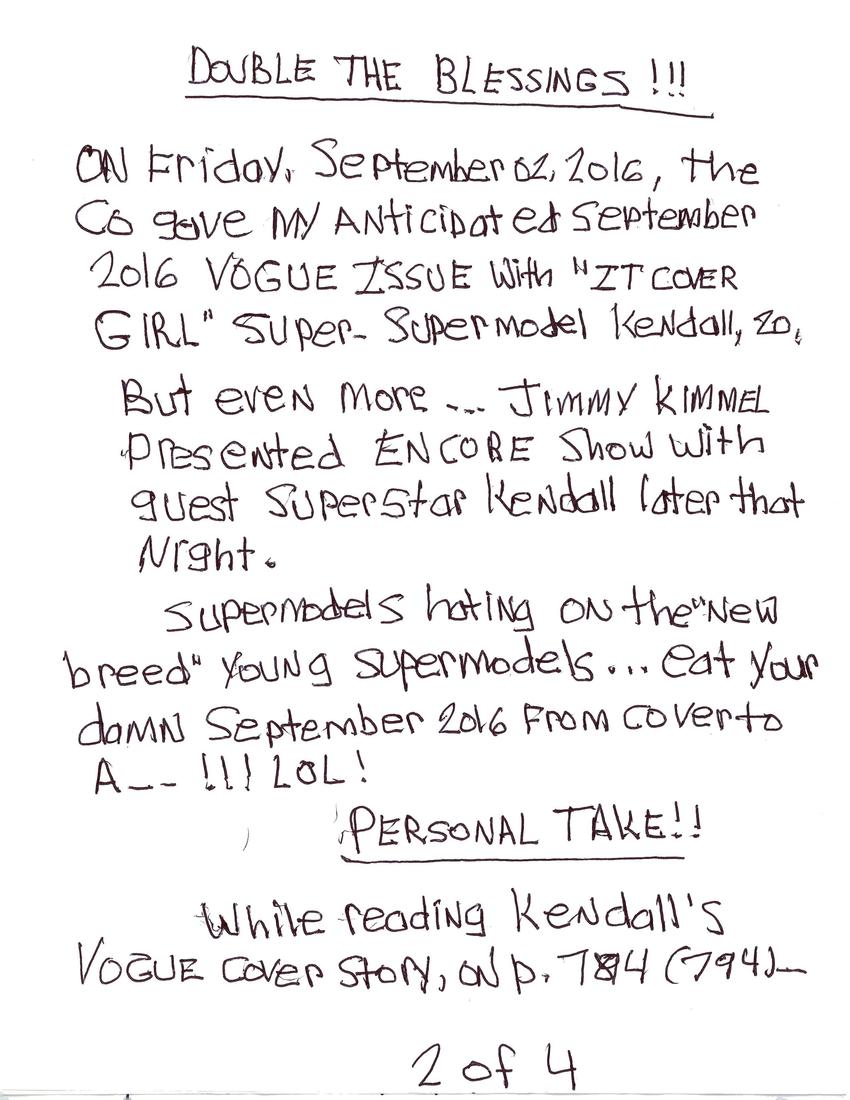 DOUBLE THE BLESSINGS !!!
ON Friday, September 02, 2016, the
CO gave MY ANTicipated September
2016 VOGUE ISSUE With "IT COVER
GIRL" SUPER- SUPERmodel Kendall, 20,
But even more ... JIMMY KIMMEL
Presented ENCORE Show with
guest SUPERStar KENdall later that
Night.
SUPERMODELS hating ON the "NEW
breed" YOUNG SUPERMODELS... eat your
damN September 2016 From Cover to
A-- !!! LOL!
PERSONAL TAKE!!
While reading Kendall's
VOGUE COVER Story, ON p. 784 (794)—
2 of 4